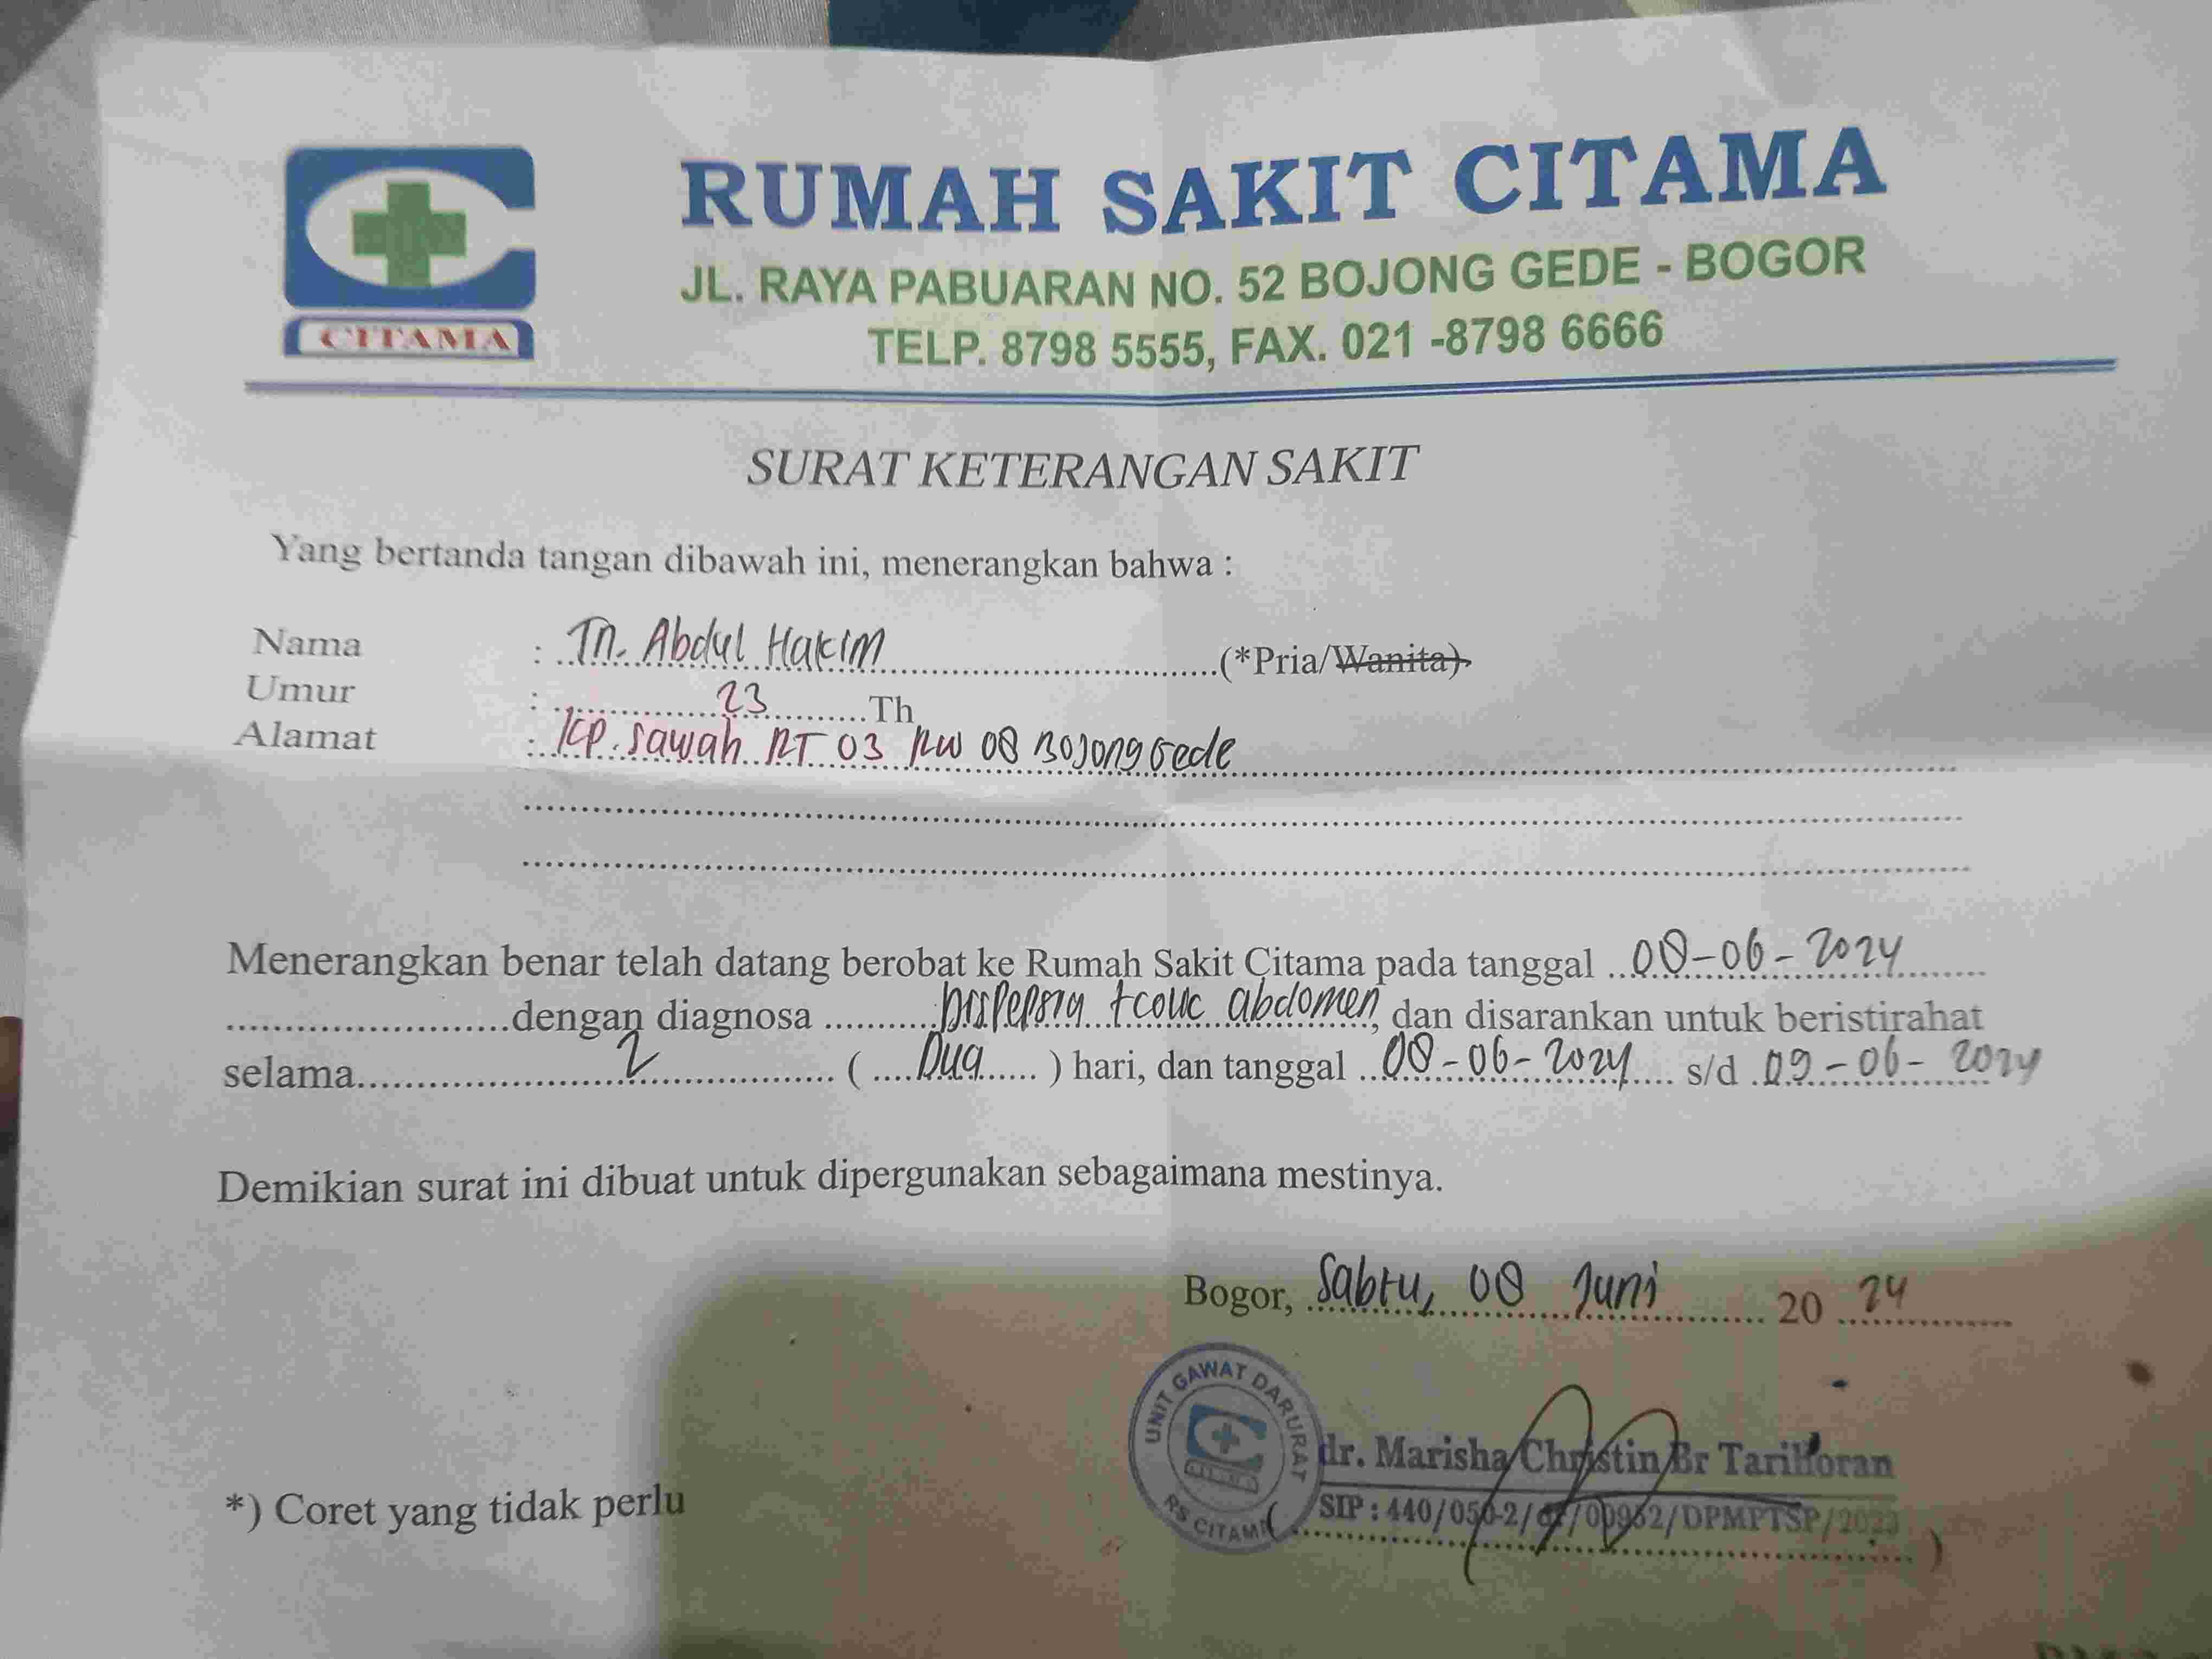 CITAMA
RUMAH SAKIT CITAMA
JL. RAYA PABUARAN NO. 52 BOJONG GEDE - BOGOR
TELP. 8798 5555, FAX. 021 -8798 6666
SURAT KETERANGAN SAKIT
Yang bertanda tangan dibawah ini, menerangkan bahwa :
Nama : Tn. Abdul Hakim (*Pria/Wanita)
Umur : 23 Th
Alamat : Kp. Sawah RT 03 RW 08 Bojong Gede
Menerangkan benar telah datang berobat ke Rumah Sakit Citama pada tanggal 08-06-2024
dengan diagnosa Dispepsia + colic abdomen, dan disarankan untuk beristirahat
selama 2 ( Dua ) hari, dan tanggal 08-06-2024 s/d 09-06-2024
Demikian surat ini dibuat untuk dipergunakan sebagaimana mestinya.
Bogor, Sabtu, 08 Juni 20 24
UNIT GAWAT DARURAT
RS CITAMA
dr. Marisha Christin Br Tarihoran
SIP : 440/050-2/ /00952/DPMPTSP/2023
( )
*) Coret yang tidak perlu